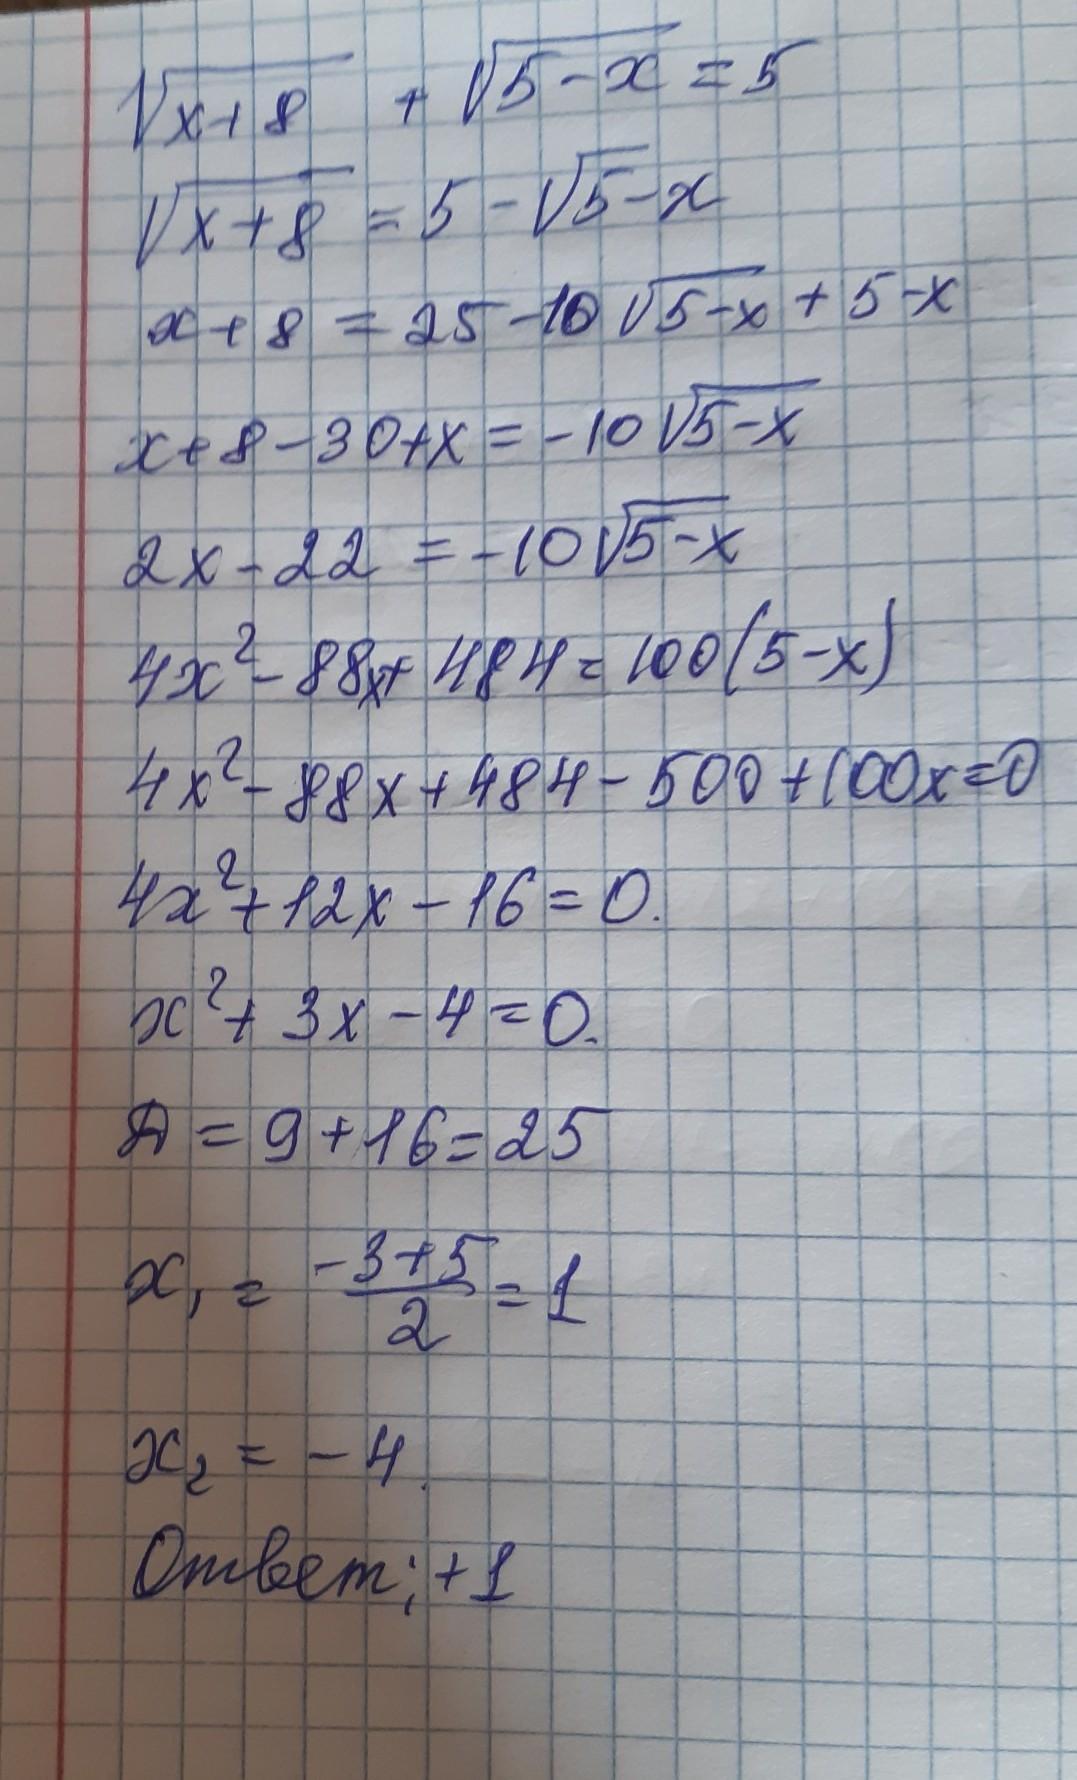 √x+8 + √5-x = 5
√x+8 = 5 - √5-x
x+8 = 25 - 10√5-x + 5-x
x+8-30+x = -10√5-x
2x-22 = -10√5-x
4x²-88x+484=100(5-x)
4x²-88x+484-500+100x=0
4x²+12x-16=0.
x²+3x-4=0.
Д = 9+16=25
x₁ = (-3+5)/2 = 1
x₂ = -4.
Ответ: +1